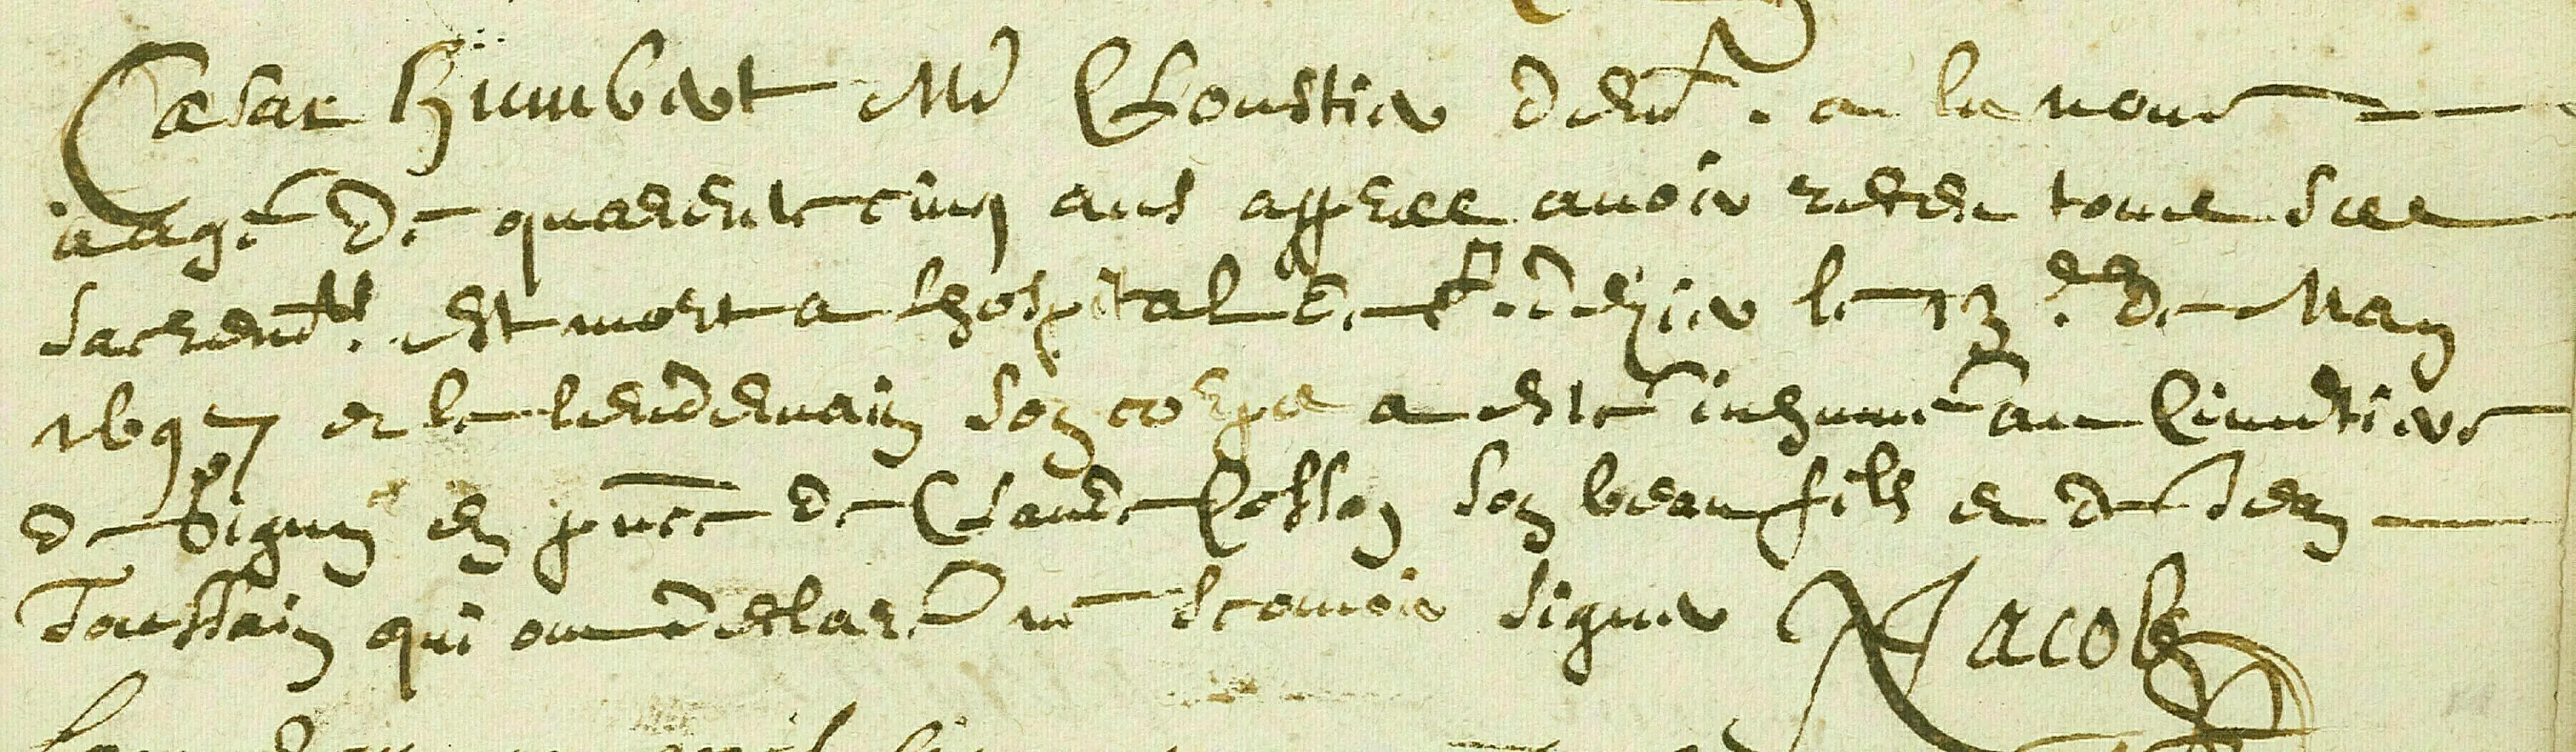 Cæsar Humbert Md Cloustier demt. a la neuve
aagé de quarente cinq ans appres avoir receu tous ses
sacremts. est mort a lhospital de St. Didier le 13.e de May
1697 et le lendemain son corps a esté inhumé au Cimetiere
de Bigny en pnce de Claude Cosson son beau fils et de Jean
Toussain qui ont declaré ne scavoir signer Jacob